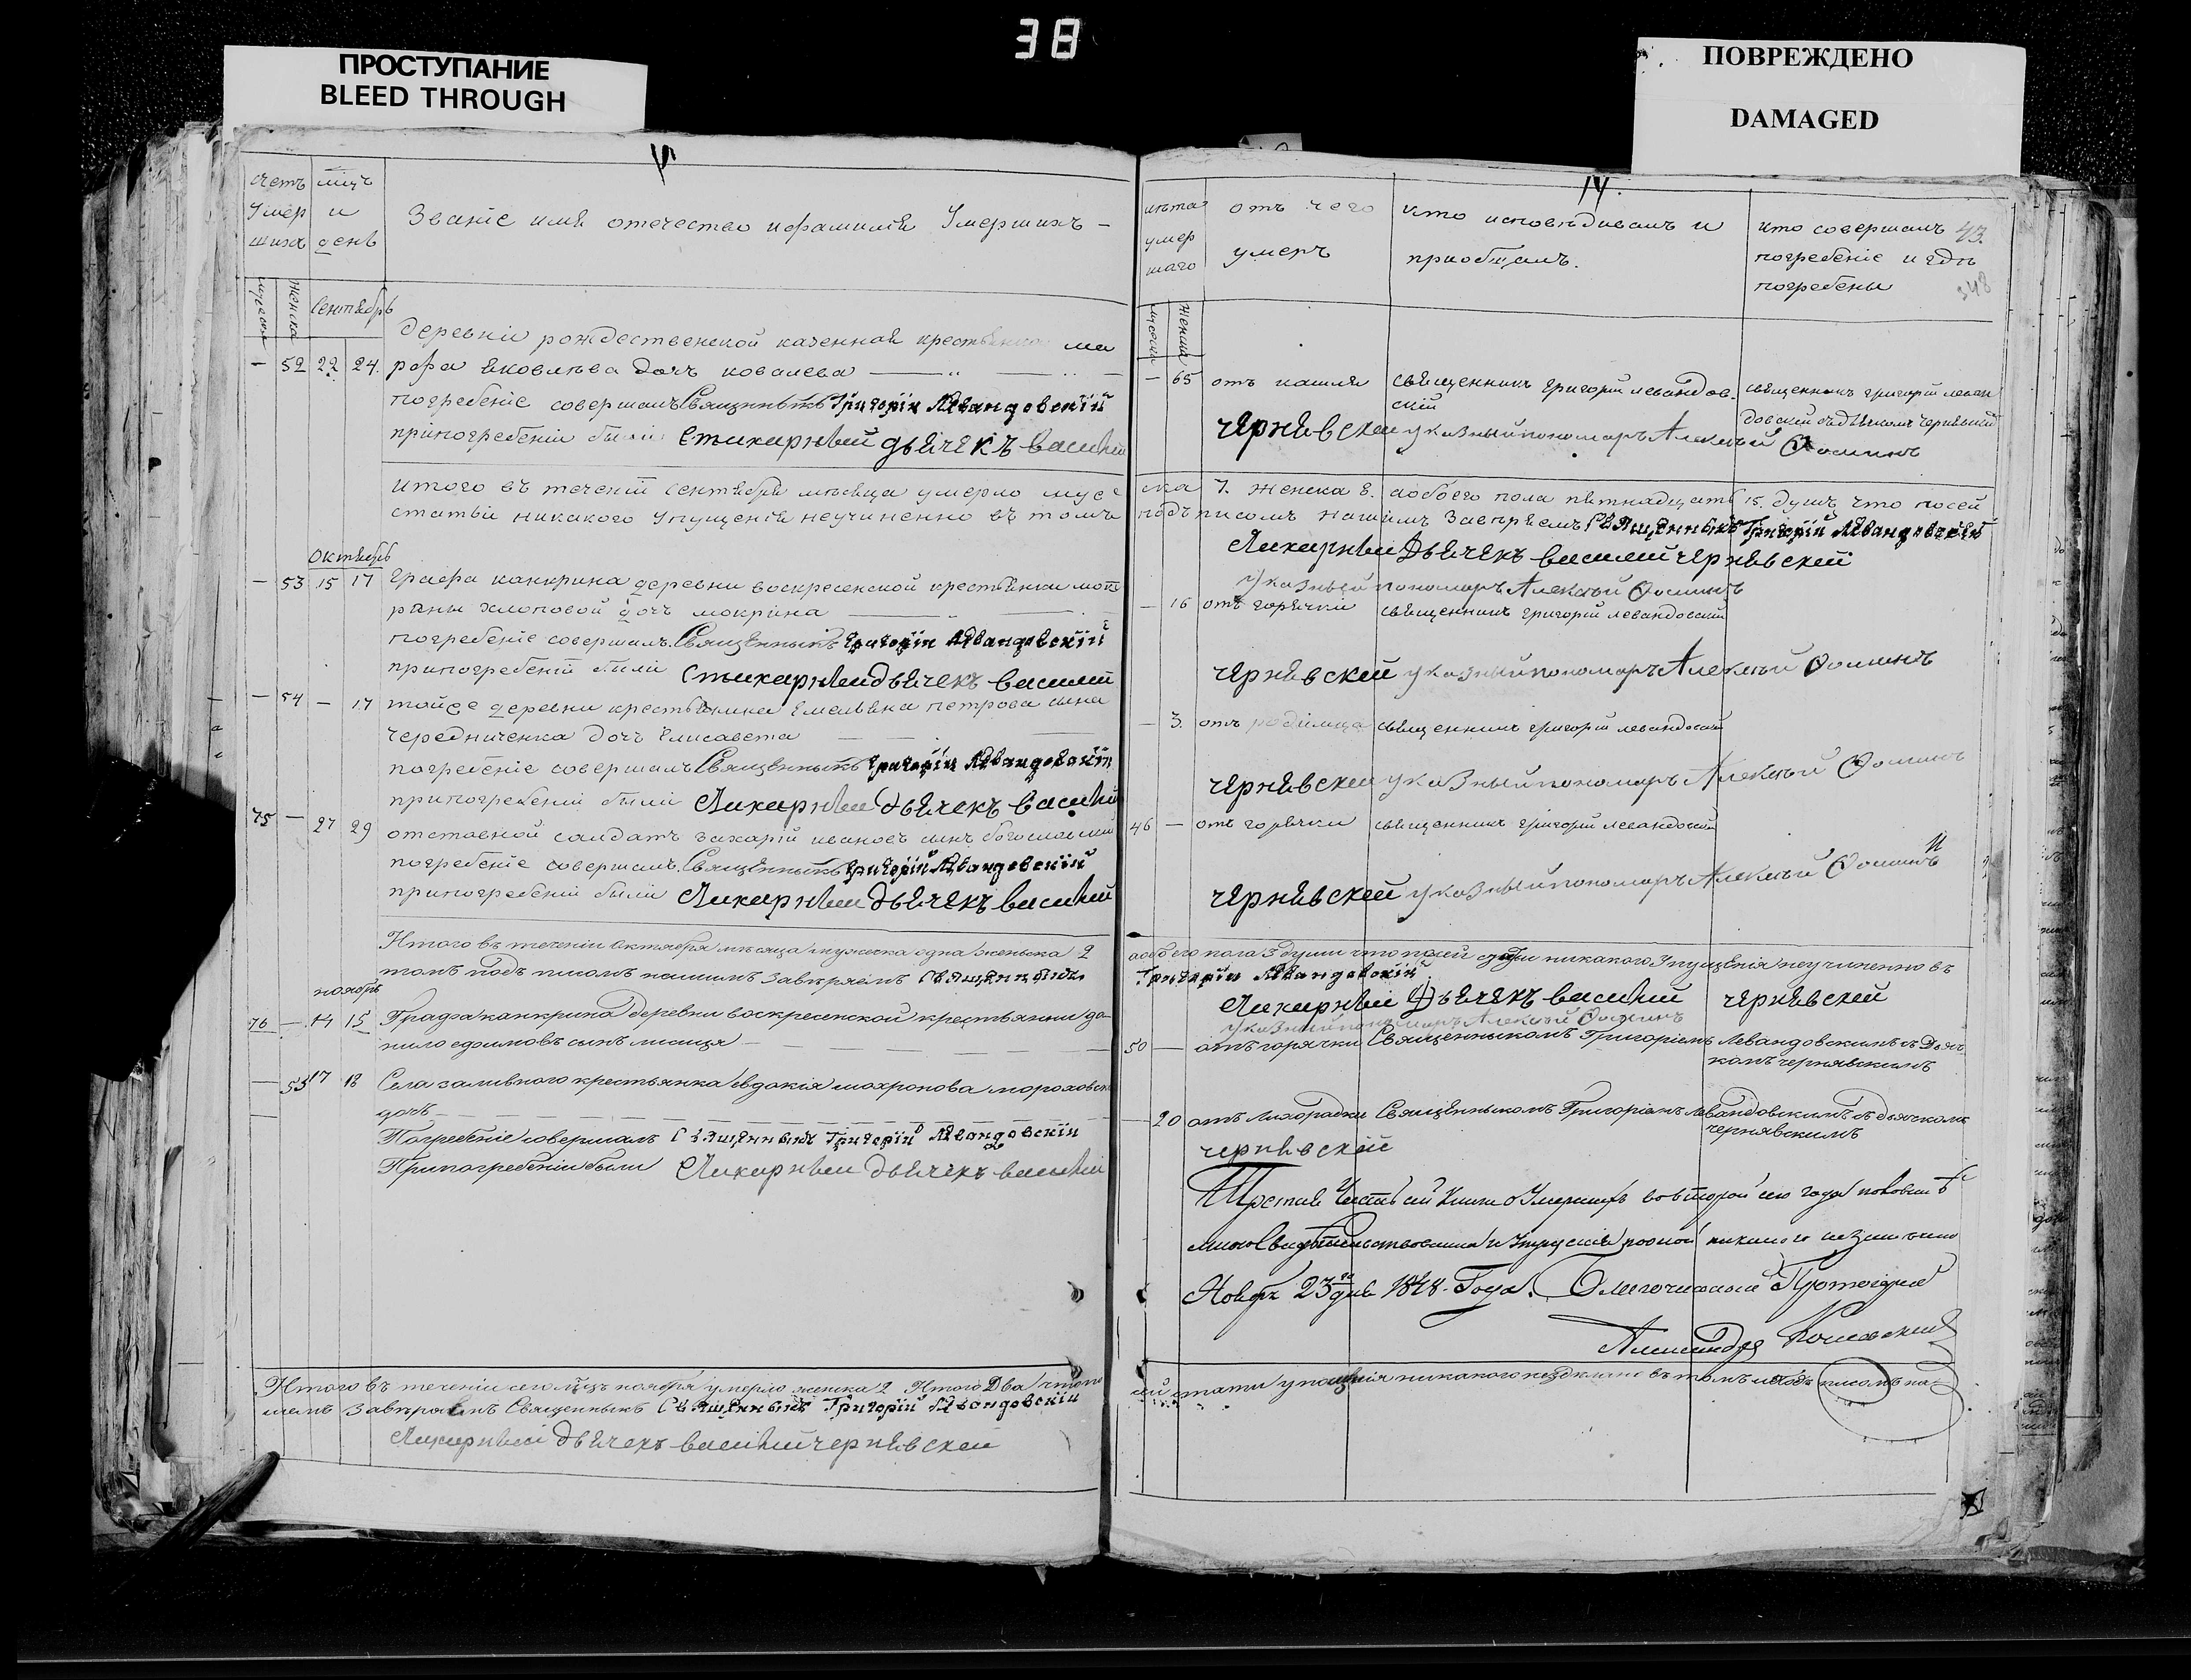 38
ПРОСТУПАНИЕ
BLEED THROUGH
ПОВРЕЖДЕНО
DAMAGED
счетъ
Умер
шихъ
мцъ
и
день
Званіе имя отечество и фамилія Умершихъ —
мужеска
женска
Сентябрь
деревни рождественской казенной крестьянка ма
— 52 22 24 рфа яковлѣва дочь ковалева
погребеніе совершалъ Священникъ Григорій Левандовскій
при погребеніи были Стихарный дьячекъ василий
итого въ теченіи сентября мѣсяца умерло мус
статьи никакого упущенія неучиненно въ томъ
Октябрь
— 53 15 17 Графа канкрина деревни воскресенской крестьянки мок
раны хлоповой дочь мокрина
погребеніе совершалъ Священникъ Григорій Левандовскій
при погребеніи были Стихарный дьячекъ василий
— 54 — 17 тойже деревни крестьянина Емельяна петрова сына
чередниченка дочь Елисавета
погребеніе совершалъ Священникъ Григорій Левандовскій
при погребеніи были Стихарный дьячекъ василий
75 — 27 29 отставной солдатъ захарій ивановъ сынъ
погребеніе совершалъ Священникъ Григорій Левандовскій
при погребеніи были Стихарный дьячекъ василий
Итого въ теченіи октября мѣсяца мужска одна женска 2
томъ подъ писомъ нашимъ завѣряемъ Священникъ
ноябрь
76 — 14 15 Графа канкрина деревни воскресенской крестьянин да
нило сынъ лисиця
— 55 17 18 Села заливного крестьянка евдокія
дочь
Погребеніе совершалъ Священникъ Григорій Левандовскій
При погребеніи были Стихарный дьячекъ василий
Итого въ теченіи сего мцъ ноября умерло женска 2 Итого Два
шимъ завѣряемъ Священникъ Священникъ Григорій Левандовскій
Стихарный дьячекъ василий чернявский
14.
43.
348
лѣта
умер
шаго
отъ чего
умеръ
кто исповѣдивалъ и
приобщалъ.
кто совершалъ
погребеніе и гдѣ
погребены
мужска
женска
— 65 отъ кашля священникъ григорій левандов-
скій
священникъ григорій леван
довский съ дьякомъ чернявский
чернявский указный пономарь Алексѣй Фоминъ
ска 7. женска 8. а обоего пола пятнадцать 15. душъ что по сей
подъ писомъ нашимъ завѣряемъ Священникъ Григорій Левандовскій
Стихарный дьячекъ василий чернявский
Указный пономарь Алексѣй Фоминъ
— 16 отъ горячки священникъ григорій левандовский
чернявский указный пономарь Алексѣй Фоминъ
— 3. отъ родимца священникъ григорій левандовский
чернявский указный пономарь Алексѣй Фоминъ
46 — отъ горячки священникъ григорій левандовский
чернявский указный пономарь Алексѣй Фоминъ
а обоего пола 3 души что по сей никакого упущенія неучиненно въ
Григорій Левандовскій
Стихарный Дьячекъ василий чернявский
указный пономарь Алексѣй Фоминъ
50 — отъ горячки Священникомъ Григоріемъ Левандовскимъ съ Дьяч
комъ чернявскимъ
— 20 отъ лихорадки Священникомъ Григоріемъ левандовскимъ съ дьячкомъ
чернявскимъ
чернявский
Третья Часть сей Книги о Умершихъ во второй сего года половинѣ
мною Свидѣтельствована и
Ноября 23го дня 1848. Года. Благочинный Протоіерей
Александръ
сей стати упощенія никакого нездѣлано въ томъ и подъ писомъ на